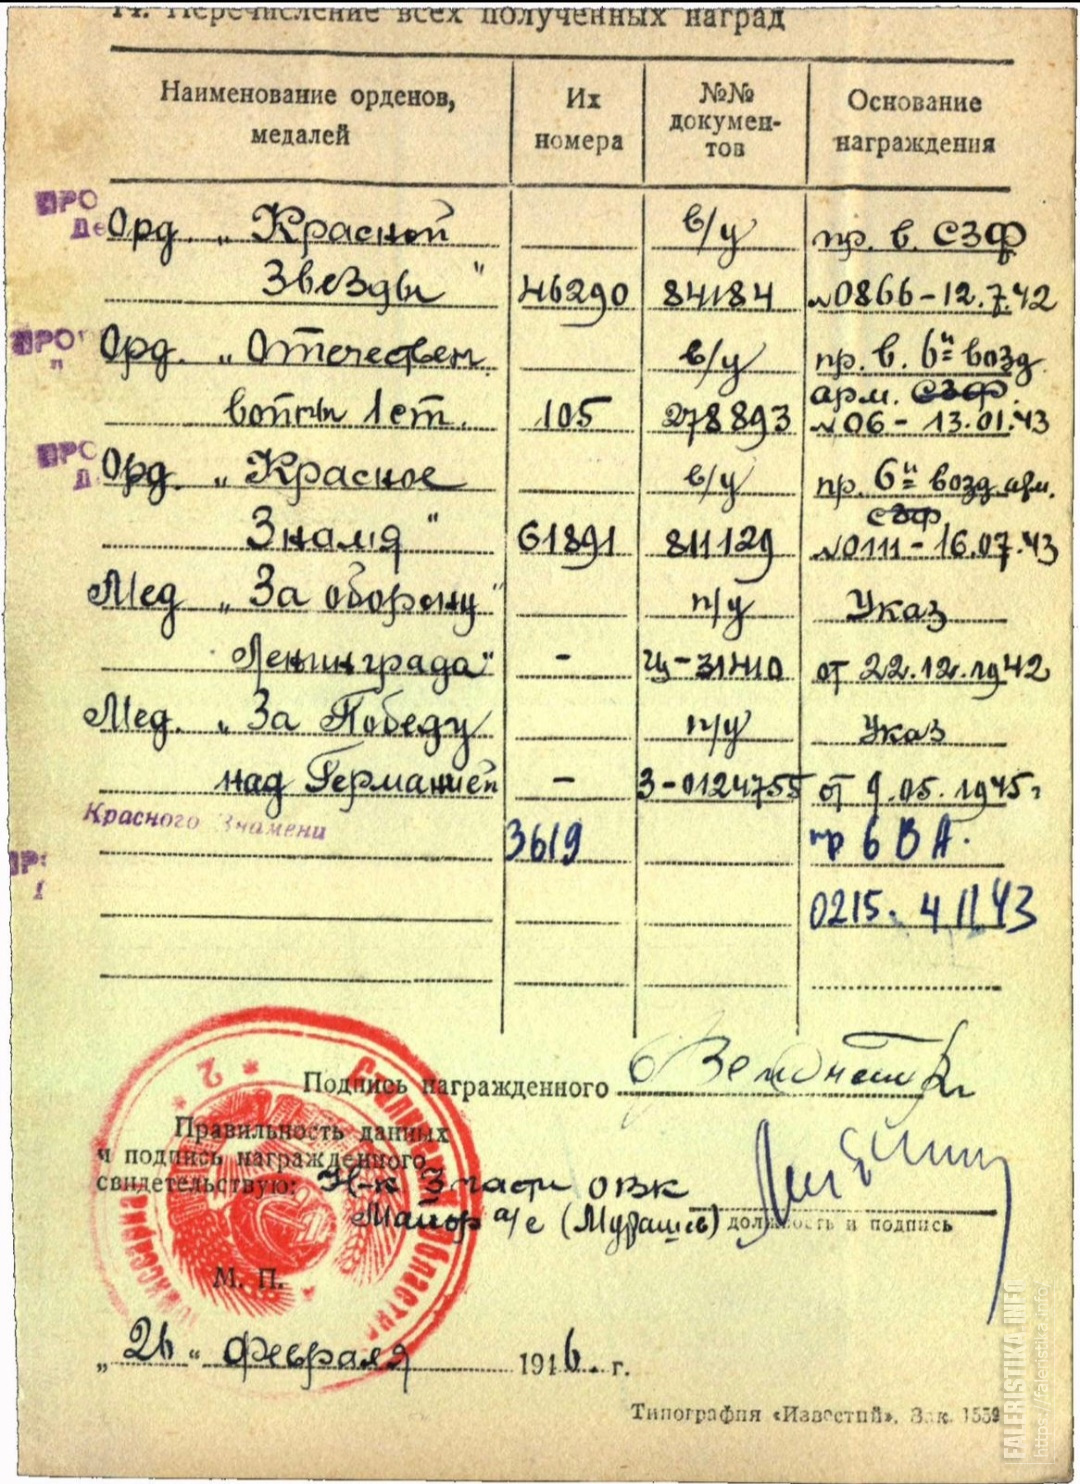 14. Перечисление всех полученных наград
Наименование орденов, медалей
Их номера
№№ документов
Основание награждения
ПРО
Де
Орд. „ Красной в/у пр. в. СЗФ
Звезды " 46290 84184 №0866-12.7.42
ПРО
п
Орд. „ Отечествен. в/у пр. в. 6й возд
арм. СЗФ.
войны 1 ст. 105 278893 №06 - 13.01.43
ПРО
Д
Орд. „ Красное в/у пр. 6й возд. арм.
СЗФ
Знамя " 61891 811129 №0111-16.07.43
Мед „ За оборону п/у Указ
Ленинграда" - Чц-31410 от 22.12.1942
Мед. „ За Победу п/у Указ
над Германией - З-0124755 от 9.05.1945г
Красного Знамени 3619 пр 6 ВА.
0215. 4 II 43
Подпись награжденного
Правильность данных
и подпись награжденного
свидетельствую: Н-к 3 части ОВК
Майор а/с (Мурашев) должность и подпись
М. П.
„ 26 " февраля 1946. г.
Типография «Известий». Зак. 1559
FALERISTIKA.INFO
https://faleristika.info